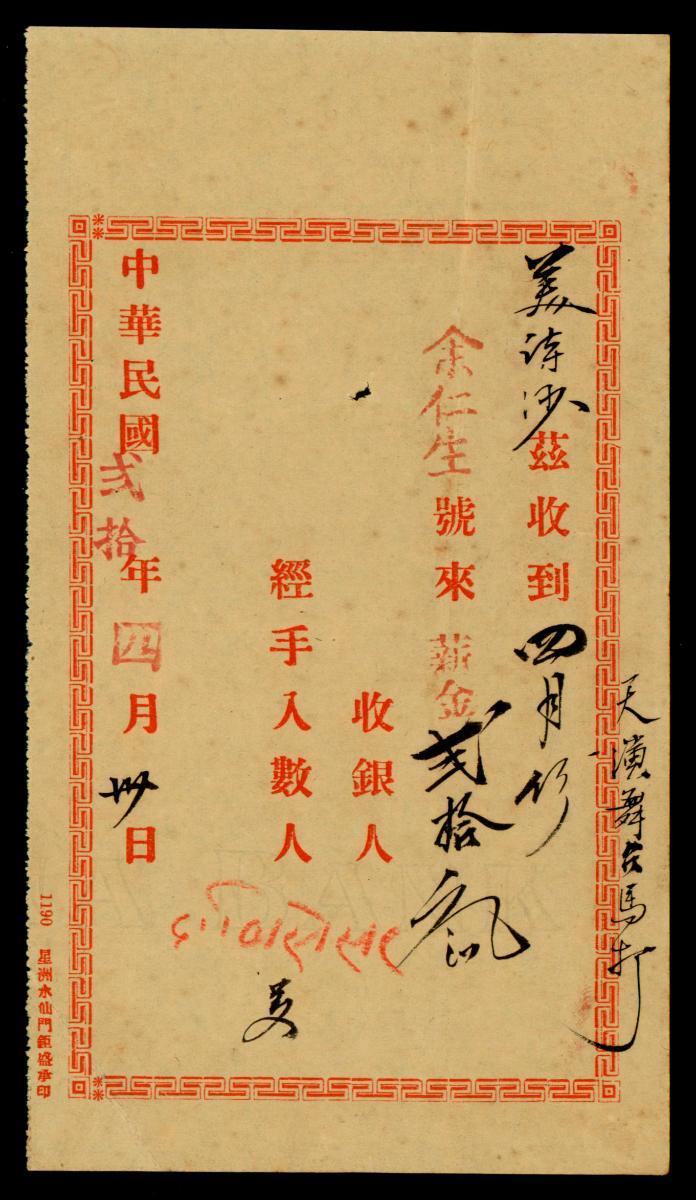 天演舞台馬打
美诗沙茲收到四月份
余仁生號來薪金弍拾
收銀人
經手入數人
中華民國弍拾年四月卅日
1190 星洲水仙門錦盛承印